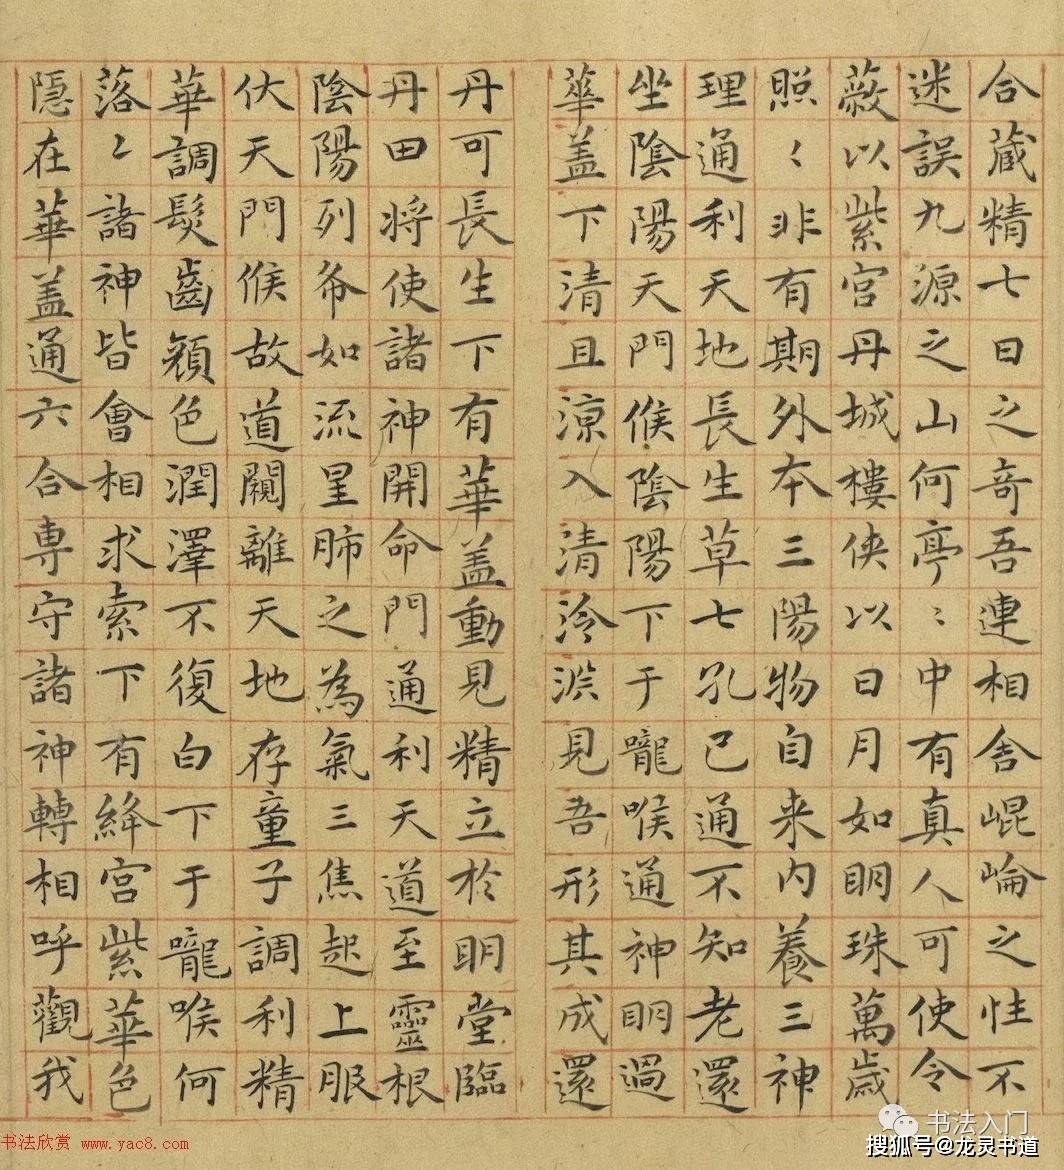 合蔵精七日之奇吾連相舎崐崘之性不
迷誤九源之山何亭〻中有真人可使令
蔽以紫宮丹城樓俠以日月如明珠萬歲
照〻非有期外夲三陽物自来内養三神
理通利天地長生草七孔已通不知老還
坐陰陽天門候陰陽下于嚨喉通神明過
華盖下清且涼入清泠淵見吾形其成還
丹可長生下有華盖動見精立於明堂臨
丹田将使諸神開命門通利天道至靈根
陰陽列布如流星肺之為氣三焦起上服
伏天門候故道闚離天地存童子調利精
華調髮齒顏色潤澤不復白下于嚨喉何
落〻諸神皆會相求索下有絳宮紫華色
隱在華盖通六合専守諸神轉相呼觀我
书法欣赏 www.yac8.com
书法入门
搜狐号@龙灵书道